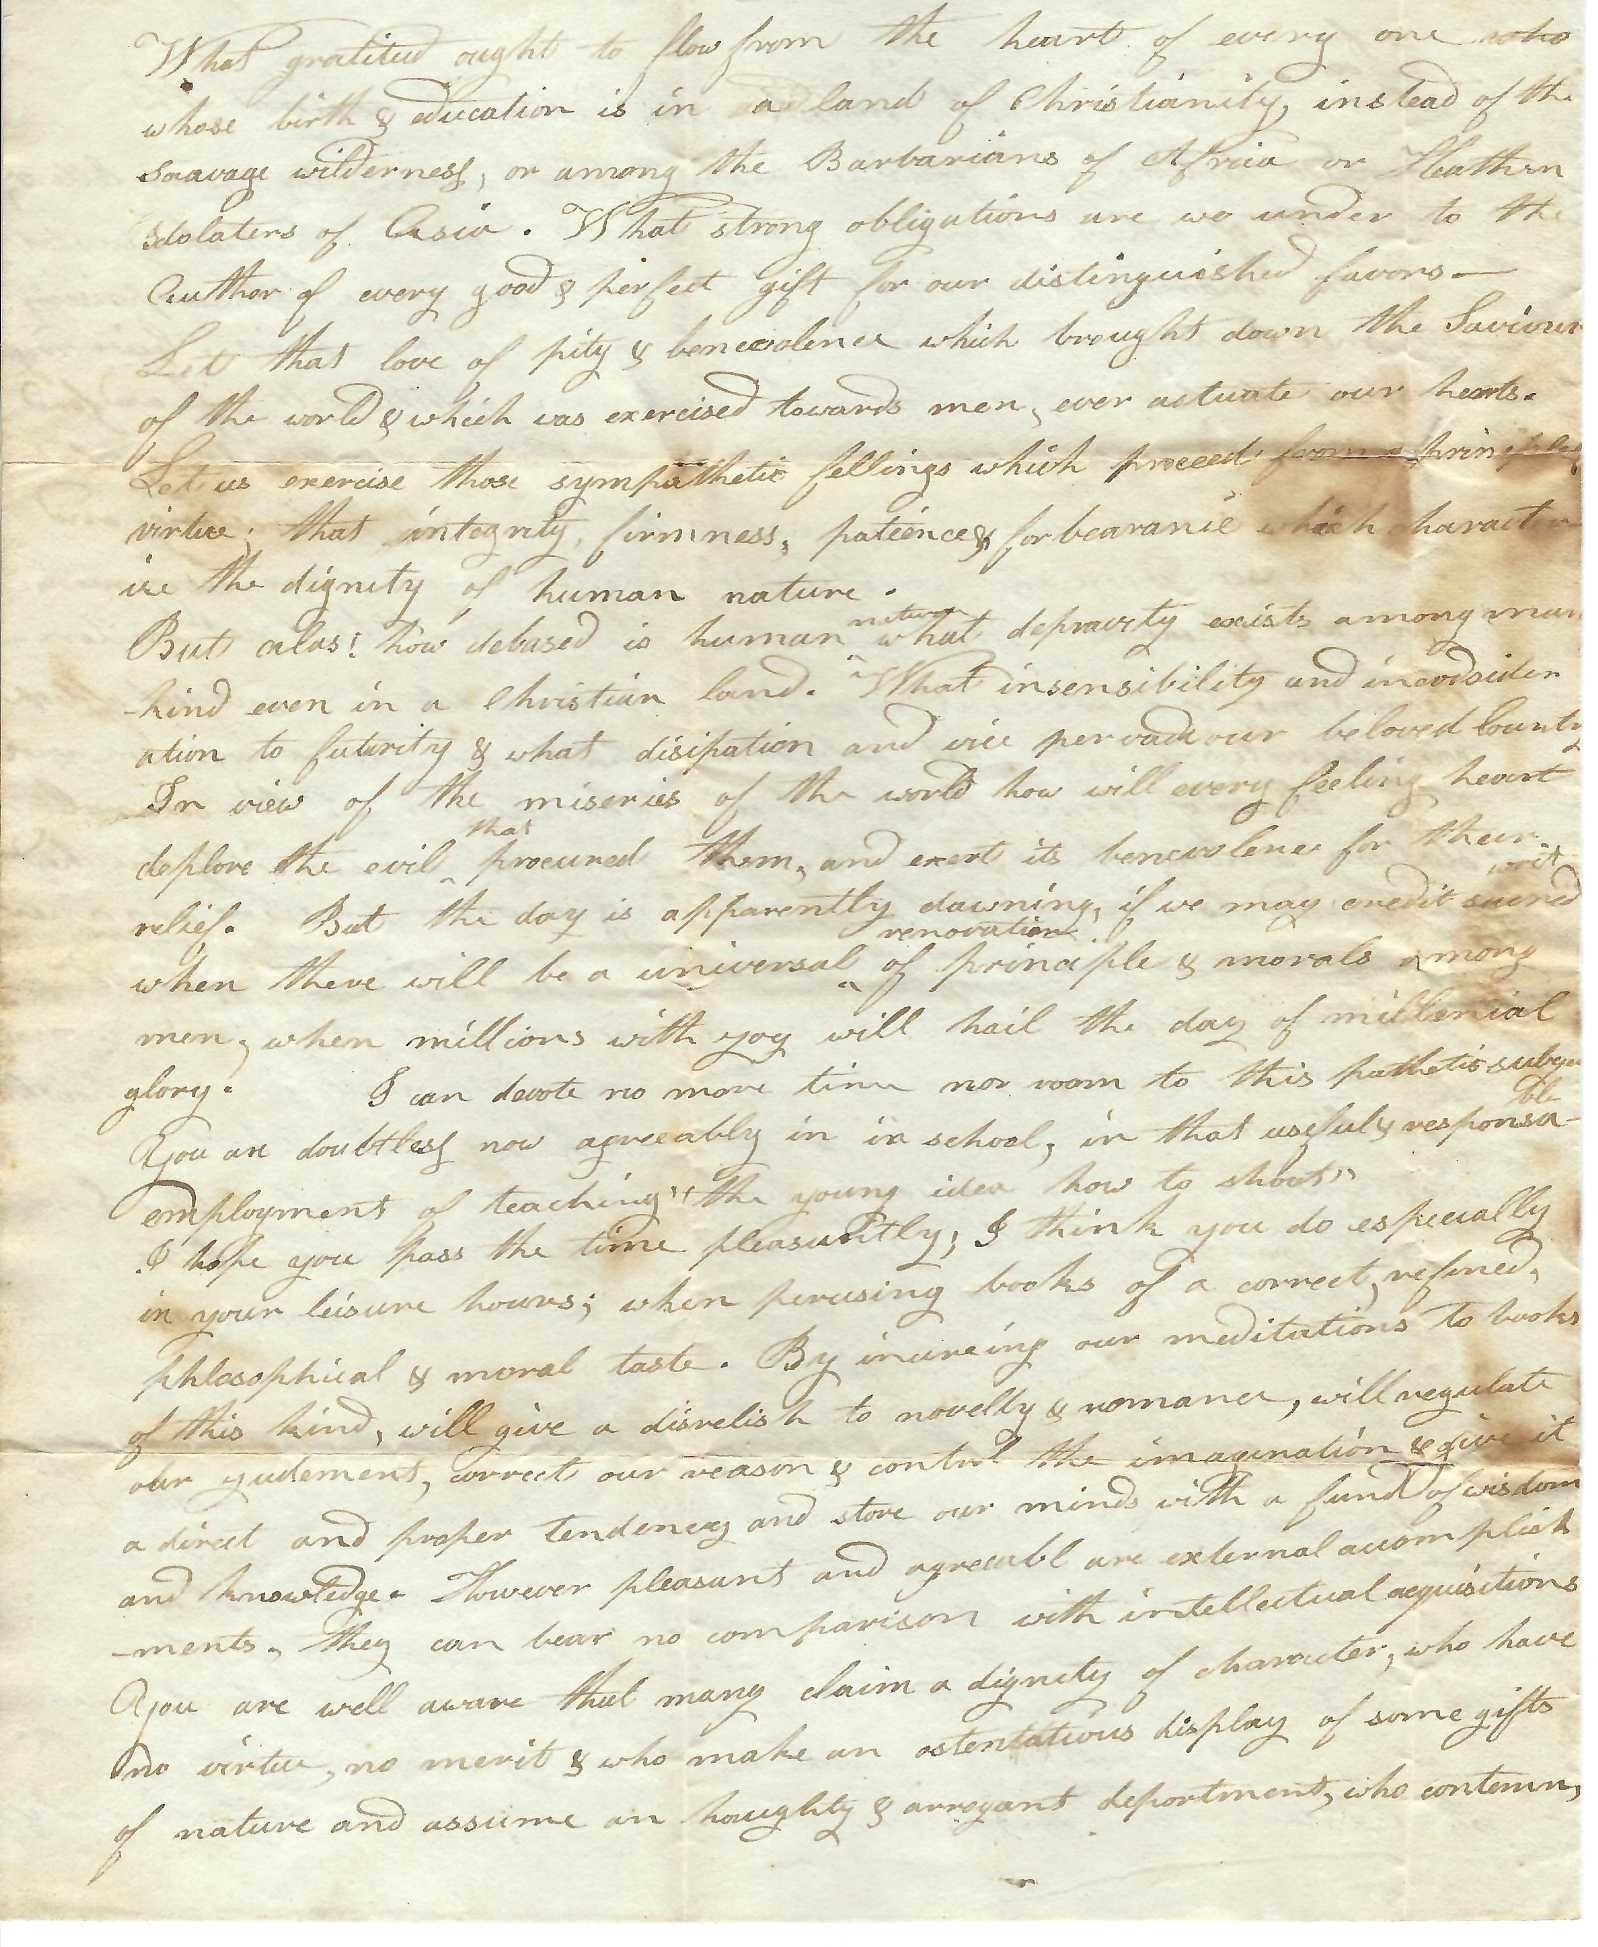 What gratitud ought to flow from the heart of every one who
whose birth & education is in a land of Christianity, instead of the
Saavage wilderness, or among the Barbarians of Africa or Heathen
Idolaters of Asia. What strong obligations are we under to the
Author of every good & perfect gift for our distinguished favors—
Let that love of pity & benevolence which brought down the Saviour
of the world & which was exercised towards men, ever actuate our hearts.
Let us exercise those sympathetic fellings which proceed from a principle of
virtue; that integrity, firmness, patience & forbearance which character
ize the dignity of human nature.
But alas! how debased is human nature what depravity exists among man
-kind even in a Christian land. What insensibility and inconsider
ation to futurity & what disipation and vice pervade our beloved County
In view of the miseries of the world how will every feeling heart
deplore the evil that procured them, and exert its benevolence for their
relief. But the day is apparently dawning, if we may credit sacred writ
when there will be a universal renovation of principle & morals among
men, when millions with yoy will hail the day of millenial
glory. I can devote no more time nor room to this pathetic subjec
You are doubtless now agreeably in in school, in that useful & responsable
employment of teaching "the young idea how to shoot"
I hope you pass the time pleasantly; I think you do especially
in your leisure hours; when perusing books of a correct, refined,
phlosophical & moral taste. By inureing our meditations to books
of this kind, will give a disrelish to novelty & romance, will regulate
our yudement, correct our reason & control the imagination & give it
a direct and proper tendency and store our minds with a fund of wisdom
and knowledge. However pleasant and agreeabl are external accomplish
-ments. they can bear no comparison with intellectual acquisitions
You are well aware that many claim a dignity of character, who have
no virtue, no merit & who make an ostentatious display of some gifts
of nature and assume an houghty & arrogant deportment, who contemn,